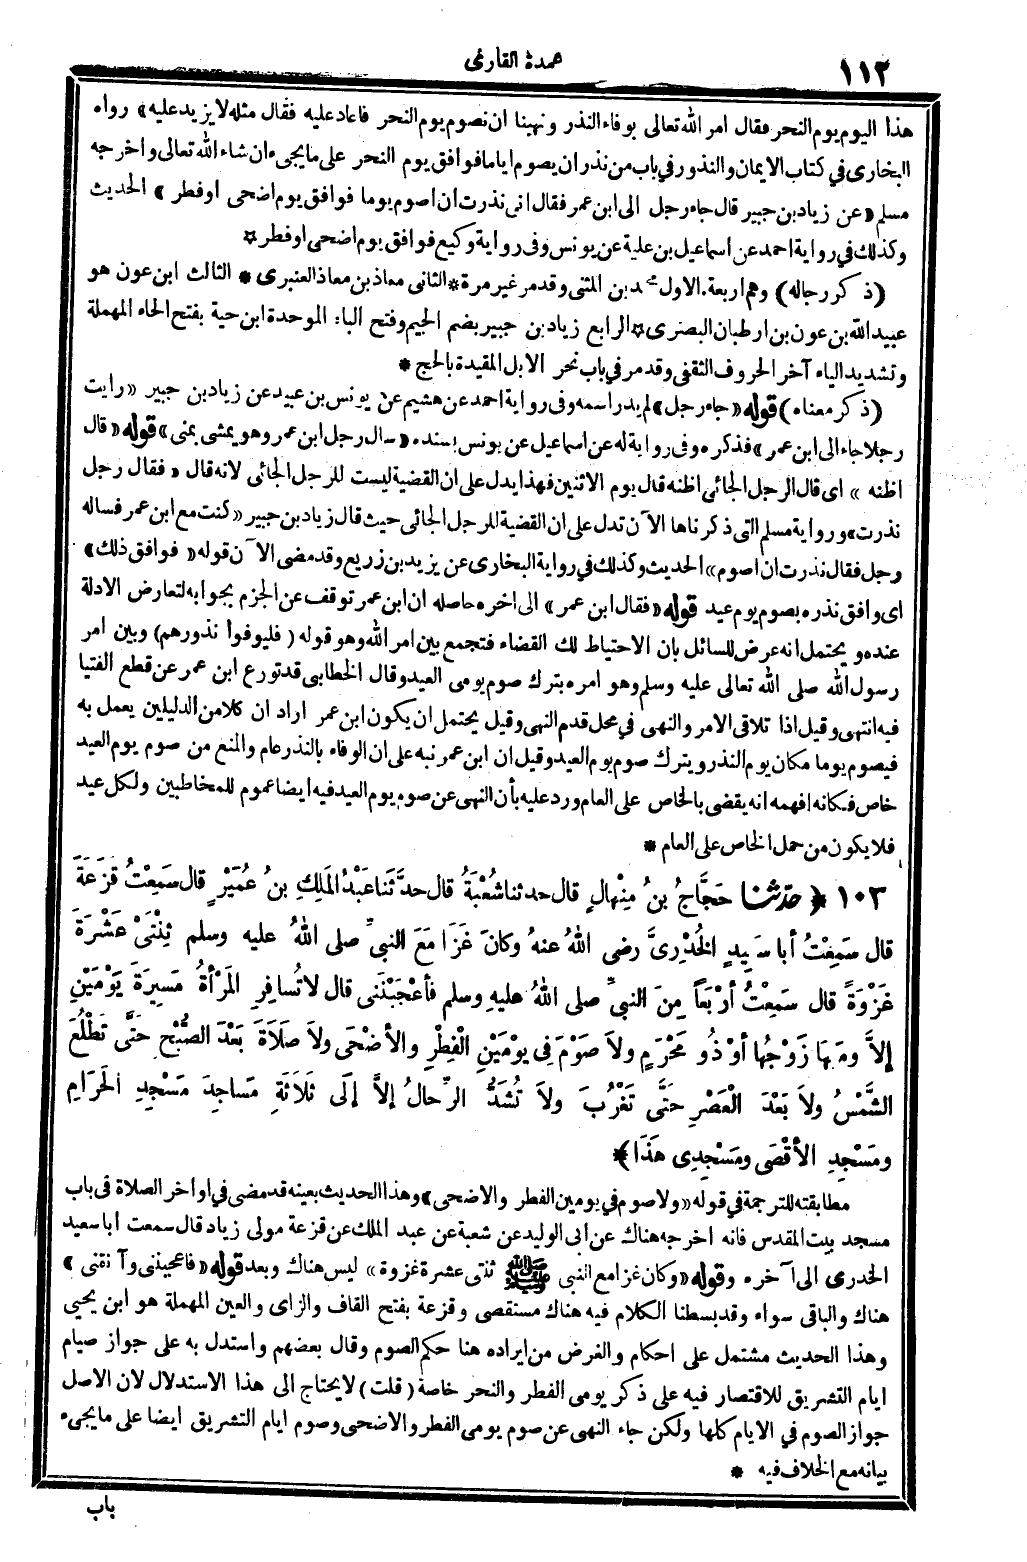 ١١٢
عمدة القارئ
هذا اليوم يوم النحر فقال امر الله تعالى بوفاء النذر ونهينا ان نصوم يوم النحر فاعاد عليه فقال مثله لا يزيد عليه» رواه
البخارى في كتاب الايمان والنذور في باب من نذر ان يصوم اياما فوافق يوم النحر على ما يجىء ان شاء الله تعالى واخرجه
مسلم «عن زياد بن جبير قال جاء رجل الى ابن عمر فقال انى نذرت ان اصوم يوما فوافق يوم اضحى اوفطر» الحديث
وكذلك في رواية احمد عن اسماعيل بن علية عن يونس وفى رواية وكيع فوافق يوم اضحى اوفطر *
(ذكر رجاله) وهم اربعة. الاول محمد بن المثنى وقد مر غير مرة * الثانى معاذ بن معاذ العنبرى * الثالث ابن عون هو
عبيد الله بن عون بن ارطبان البصرى * الرابع زياد بن جبير بضم الجيم وفتح الباء الموحدة ابن حية بفتح الحاء المهملة
وتشديد الياء آخر الحروف الثقفى وقد مر في باب نحر الابل المقيدة بالحج *
(ذكر معناه) قوله «جاء رجل» لم يدر اسمه وفى رواية احمد عن هشيم عن يونس بن عبيد عن زياد بن جبير «رايت
رجلا جاء الى ابن عمر» فذكره وفى رواية له عن اسماعيل عن يونس بسنده «سال رجل ابن عمر وهو يمشى بمنى» قوله «قال
اظنه» اى قال الرجل الجائى اظنه قال يوم الاثنين فهذا يدل على ان القضية ليست للرجل الجائى لانه قال «فقال رجل
نذرت» ورواية مسلم التى ذكرناها الآن تدل على ان القضية للرجل الجائى حيث قال زياد بن جبير «كنت مع ابن عمر فساله
رجل فقال نذرت ان اصوم» الحديث وكذلك في رواية البخارى عن يزيد بن زريع وقد مضى الآن قوله «فوافق ذلك»
اى وافق نذره بصوم يوم عيد قوله «فقال ابن عمر» الى اخره حاصله ان ابن عمر توقف عن الجزم بجوابه لتعارض الادلة
عنده ويحتمل انه عرض للسائل بان الاحتياط لك القضاء فتجمع بين امر الله وهو قوله (فليوفوا نذورهم) وبين امر
رسول الله صلى الله تعالى عليه وسلم وهو امره بترك صوم يومى العيد وقال الخطابى قد تورع ابن عمر عن قطع الفتيا
فيه انتهى وقيل اذا تلاقى الامر والنهى في محل قدم النهى وقيل يحتمل ان يكون ابن عمر اراد ان كلا من الدليلين يعمل به
فيصوم يوما مكان يوم النذر ويترك صوم يوم العيد وقيل ان ابن عمر نبه على ان الوفاء بالنذر عام والمنع من صوم يوم العيد
خاص فكانه افهمه انه يقضى بالخاص على العام ورد عليه بأن النهى عن صوم يوم العيد فيه ايضا عموم للمخاطبين ولكل عيد
فلا يكون من حمل الخاص على العام *
١٠٣ ﴿ حدثنا حَجَّاجُ بنُ مِنْهالٍ قال حدثنا شُعْبَةُ قال حدَّثَنا عَبْدُ المَلِكِ بنُ عُمَيْرٍ قال سَمِعْتُ قَزَعَةَ
قال سَمِعْتُ أبا سَعِيدٍ الخُدْرِىَّ رضى اللهُ عنهُ وكانَ غَزَا مَعَ النبىِّ صلى اللهُ عليه وسلم ثِنْتَىْ عَشْرَةَ
غَزْوَةً قال سَمِعْتُ أرْبَعاً مِنَ النبىِّ صلى اللهُ عليهِ وسلم فأعْجَبْنَنى قال لا تُسافِرِ المَرْأةُ مَسِيرَةَ يَوْمَيْنِ
إلاَّ ومَعَها زَوْجُها أوْ ذُو مَحْرَمٍ ولا صَوْمَ فى يوْمَيْنِ الْفِطْرِ والأضْحَى ولا صَلَاةَ بَعْدَ الصُّبْحِ حَتَّى تَطْلُعَ
الشَّمْسُ ولاَ بَعْدَ الْعَصْرِ حَتَّى تَغْرُبَ ولاَ تُشَدُّ الرِّحالُ إلاَّ إلَى ثَلاَثَةِ مَساجِدَ مَسْجِدِ الحَرَامِ
ومَسْجِدِ الأقْصَى ومَسْجِدِى هَذَا﴾ *
مطابقته للترجمة في قوله «ولا صوم في يومين الفطر والاضحى» وهذا الحديث بعينه قد مضى في اواخر الصلاة فى باب
مسجد بيت المقدس فانه اخرجه هناك عن ابى الوليد عن شعبة عن عبد الملك عن قزعة مولى زياد قال سمعت ابا سعيد
الخدرى الى آخره وقوله «وكان غزا مع النبى ﷺ ثنتى عشرة غزوة» ليس هناك وبعد قوله «فاعجبننى وآنقننى»
هناك والباقى سواء وقد بسطنا الكلام فيه هناك مستقصى وقزعة بفتح القاف والزاى والعين المهملة هو ابن يحيى
وهذا الحديث مشتمل على احكام والغرض من ايراده هنا حكم الصوم وقال بعضهم واستدل به على جواز صيام
ايام التشريق للاقتصار فيه على ذكر يومى الفطر والنحر خاصة (قلت) لا يحتاج الى هذا الاستدلال لان الاصل
جواز الصوم في الايام كلها ولكن جاء النهى عن صوم يومى الفطر والاضحى وصوم ايام التشريق ايضا على ما يجىء
بيانه مع الخلاف فيه *
باب